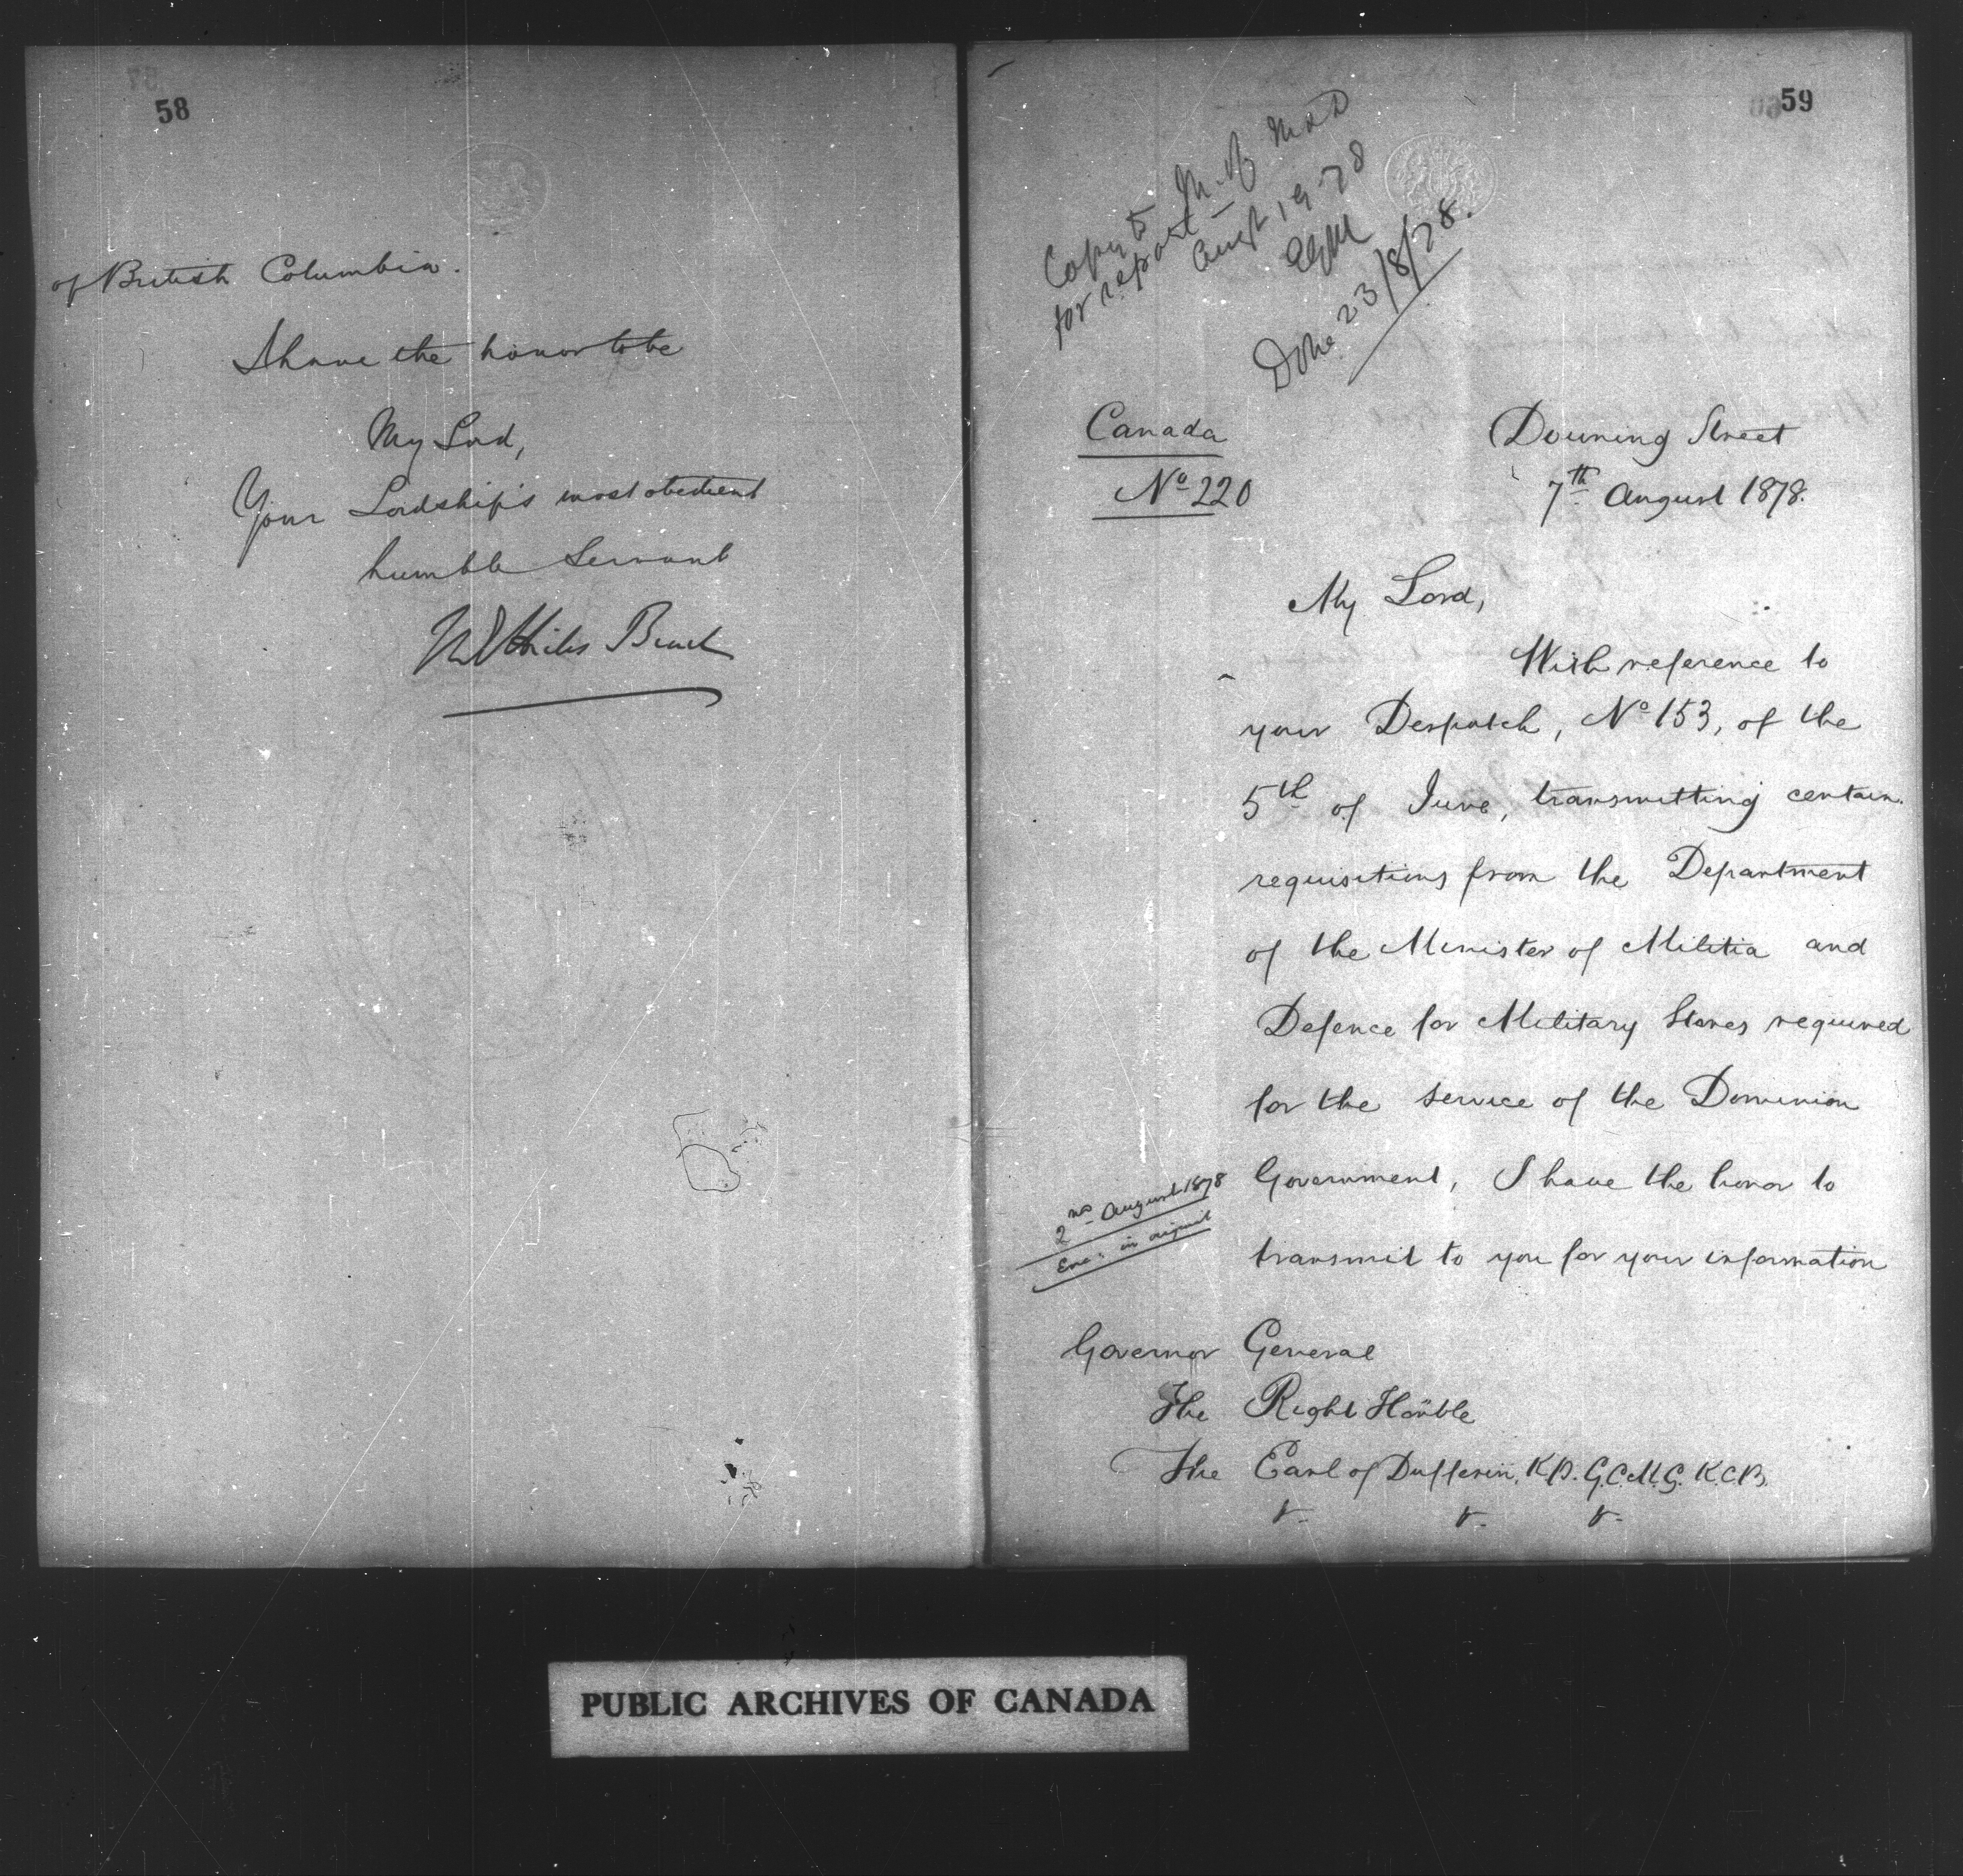 58
of British Columbia.
I have the honor to be
My Lord,
Your Lordship's most obedient
humble Servant
M E Hicks Beach
59
Copy to M. of M & D
for report
Augt 19-78
Done 23/8/78.
Canada
Nº 220
Downing Street
7th August 1878.
My Lord,
With reference to
your Despatch, Nº 153, of the
5th of June, transmitting certain
requisitions from the Department
of the Minister of Militia and
Defence for Military Stores required
for the service of the Dominion
Government, I have the honor to
transmit to you for your information
2nd August 1878
Enc: in original
Governor General
The Right Honble
The Earl of Dufferin, K.P. G.C.M.G. K.C.B.
&- &- &-
PUBLIC ARCHIVES OF CANADA